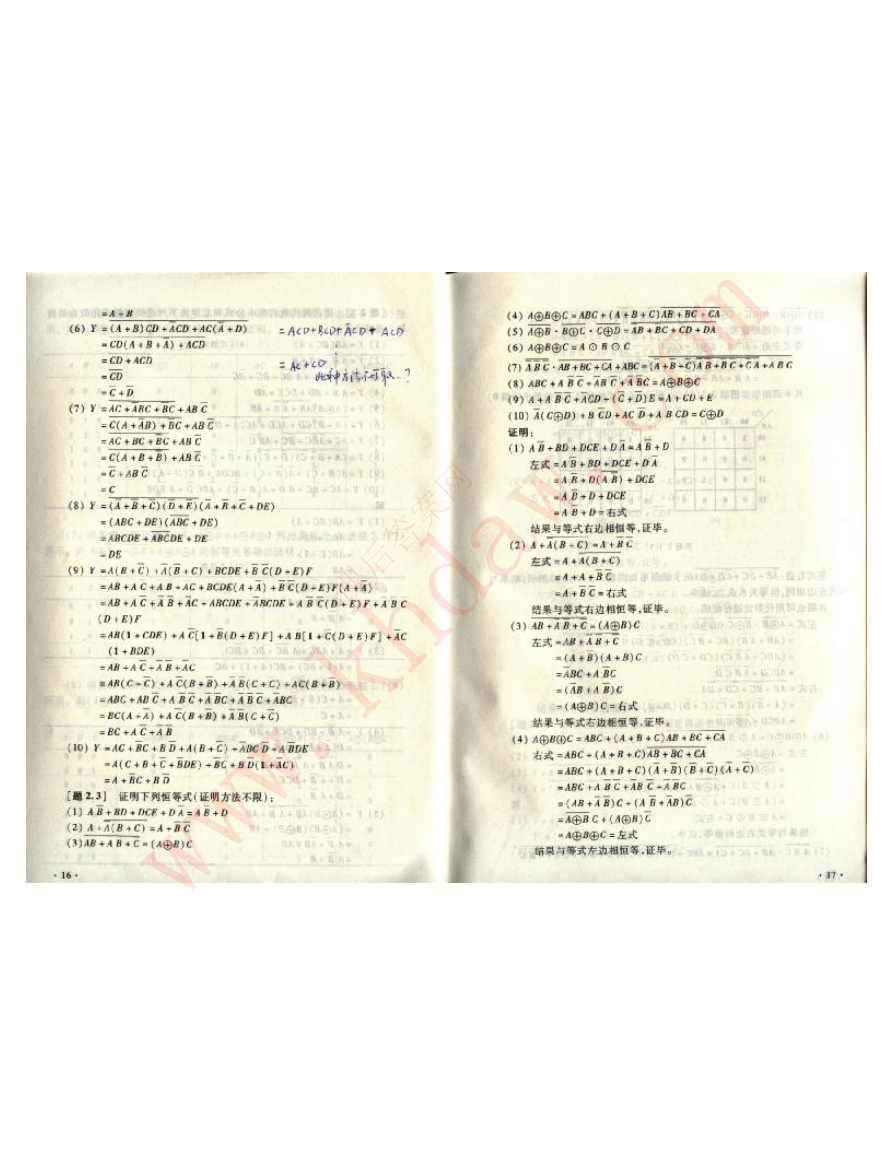 =A+B
(6) Y=\overline{(A+B)CD+\overline{A}CD+AC(\overline{A}+D)}
=ACD+BCD+\overline{A}CD+ACD
=\overline{CD(A+B+\overline{A})+ACD}
=\overline{CD+ACD}
=AC+CD
=\overline{CD}
此种方法不可取..?
=\overline{C}+\overline{D}
(7) Y=\overline{AC+\overline{A}BC+\overline{B}C}+AB\overline{C}
=\overline{C(A+\overline{A}B)+\overline{B}C}+AB\overline{C}
=\overline{AC+BC+\overline{B}C}+AB\overline{C}
=\overline{C(A+B+\overline{B})}+AB\overline{C}
=\overline{C}+AB\overline{C}
=\overline{C}
(8) Y=\overline{(\overline{A}+\overline{B}+\overline{C})(\overline{D}+\overline{E})}(\overline{A}+\overline{B}+\overline{C}+DE)
=(ABC+DE)(\overline{ABC}+DE)
=ABCDE+\overline{ABC}DE+DE
=DE
(9) Y=A(B+\overline{C})+\overline{A}(\overline{B}+C)+BCDE+\overline{B}\overline{C}(D+E)F
=AB+A\overline{C}+\overline{A}\overline{B}+\overline{A}C+BCDE(A+\overline{A})+\overline{B}\overline{C}(D+E)F(A+\overline{A})
=AB+A\overline{C}+\overline{A}\overline{B}+\overline{A}C+ABCDE+\overline{A}BCDE+A\overline{B}\overline{C}(D+E)F+\overline{A}\overline{B}\overline{C}
(D+E)F
=AB(1+CDE)+A\overline{C}[1+\overline{B}(D+E)F]+\overline{A}\overline{B}[1+\overline{C}(D+E)F]+\overline{A}C
(1+BDE)
=AB+A\overline{C}+\overline{A}\overline{B}+\overline{A}C
=AB(C+\overline{C})+A\overline{C}(B+\overline{B})+\overline{A}\overline{B}(C+\overline{C})+\overline{A}C(B+\overline{B})
=ABC+AB\overline{C}+A\overline{B}\overline{C}+\overline{A}\overline{B}C+\overline{A}\overline{B}\overline{C}+\overline{A}BC
=BC(A+\overline{A})+A\overline{C}(B+\overline{B})+\overline{A}\overline{B}(C+\overline{C})
=BC+A\overline{C}+\overline{A}\overline{B}
(10) Y=AC+\overline{B}C+B\overline{D}+A(B+\overline{C})+\overline{A}BC\overline{D}+A\overline{B}DE
=A(C+B+\overline{C}+\overline{B}DE)+\overline{B}C+B\overline{D}(1+\overline{A}C)
=A+\overline{B}C+B\overline{D}
[题2.3] 证明下列恒等式(证明方法不限):
(1) A\overline{B}+BD+DCE+D\overline{A}=A\overline{B}+D
(2) A+\overline{A}\overline{(B+C)}=A+\overline{B}\overline{C}
(3) \overline{AB+\overline{A}\overline{B}+\overline{C}}=(A⊕B)C
·16·
(4) A⊕B⊕C=ABC+(A+B+C)\overline{AB+BC+CA}
(5) \overline{A⊕B}·\overline{B⊕C}·\overline{C⊕D}=\overline{A\overline{B}+B\overline{C}+C\overline{D}+D\overline{A}}
(6) A⊕B⊕C=A⊙B⊙C
(8) ABC+A\overline{B}\overline{C}+\overline{A}B\overline{C}+\overline{A}\overline{B}C=A⊕B⊕C
(9) A+A\overline{B}\overline{C}+\overline{A}CD+(\overline{C}+\overline{D})E=A+CD+E
(10) \overline{A}(C⊕D)+B\overline{C}D+AC\overline{D}+A\overline{B}\overline{C}D=C⊕D
证明:
(1) A\overline{B}+BD+DCE+D\overline{A}=A\overline{B}+D
左式=A\overline{B}+BD+DCE+D\overline{A}
=A\overline{B}+D(\overline{A\overline{B}})+DCE
=A\overline{B}+D+DCE
=A\overline{B}+D=右式
结果与等式右边相恒等,证毕。
(2) A+\overline{A}\overline{(B+C)}=A+\overline{B}\overline{C}
左式=A+\overline{A}\overline{(B+C)}
=A+\overline{A}·\overline{B}\overline{C}
=A+\overline{B}\overline{C}=右式
结果与等式右边相恒等,证毕。
(3) \overline{AB+\overline{A}\overline{B}+\overline{C}}=(A⊕B)C
左式=\overline{AB+\overline{A}\overline{B}+\overline{C}}
=(\overline{A}+\overline{B})(A+B)C
=\overline{A}BC+A\overline{B}C
=(\overline{A}B+A\overline{B})C
=(A⊕B)C=右式
结果与等式右边相恒等,证毕。
(4) A⊕B⊕C=ABC+(A+B+C)\overline{AB+BC+CA}
右式=ABC+(A+B+C)\overline{AB+BC+CA}
=ABC+(A+B+C)(\overline{A}+\overline{B})(\overline{B}+\overline{C})(\overline{A}+\overline{C})
=ABC+A\overline{B}\overline{C}+\overline{A}B\overline{C}+\overline{A}\overline{B}C
=(AB+\overline{A}\overline{B})C+(A\overline{B}+\overline{A}B)\overline{C}
=\overline{A⊕B}C+(A⊕B)\overline{C}
=A⊕B⊕C=左式
结果与等式左边相恒等,证毕。
·17·
www.khdaw.com